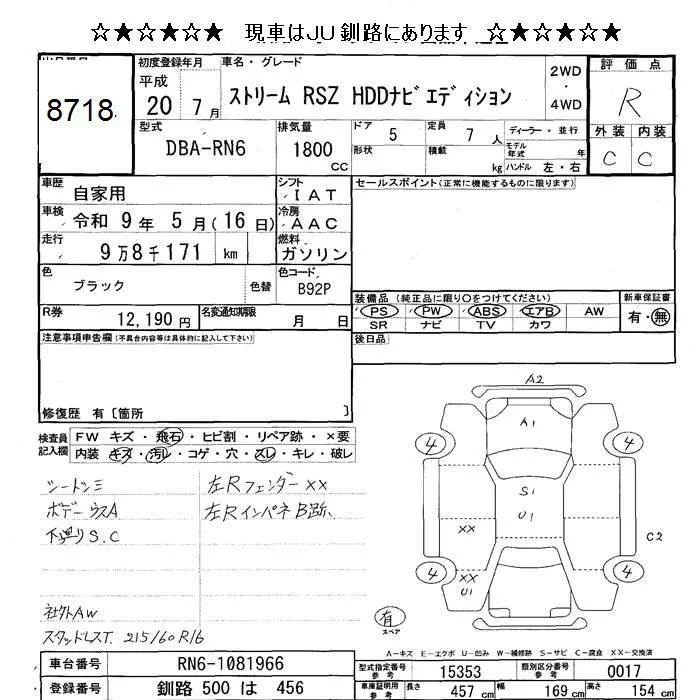 ☆★☆★☆★ 現車はJU釧路にあります ☆★☆★☆★
8718
初度登録年月
平成
20 7月
車名・グレード
ストリーム RSZ HDDナビエディション
2WD
・
4WD
評価点
R
外装 内装
C C
型式
DBA-RN6
排気量
1800
CC
ドア 5
形状
定員 7 人
積載 kg
ディーラー・並行
モデル年式 年
ハンドル 左・右
車歴 自家用
シフト IAT
セールスポイント(正常に機能するものに限ります)
車検 令和 9年 5月(16日)
冷房 AAC
走行 9万8千171 km
燃料 ガソリン
色 ブラック 色替
色コード B92P
装備品(純正品に限り○をつけてください)
PS PW ABS エアB AW
SR ナビ TV カワ
新車保証書
有・無
R券 12,190円
名変通知期限 月 日
後日品
注意事項申告欄(不具合内容等は具体的に記入して下さい)
修復歴 有〔箇所 〕
検査員記入欄
FW キズ・飛石・ヒビ割・リペア跡・×要
内装 キズ・汚レ・コゲ・穴・スレ・キレ・破レ
シートシミ
左RフェンダーXX
ボデーウスA
左RインパネB跡
下廻りS.C
社外AW
スタッドレスT. 215/60R16
A2
A1
4 4
S1
U1
XX
C2
4 4
XX
U1
有
スペア
A-キズ E-エクボ U-凹み W-補修跡 S-サビ C-腐食 XX-交換済
車台番号 RN6-1081966
登録番号 釧路 500 は 456
型式指定番号 参考 15353
類別区分番号 参考 0017
車庫証明用 参考 長さ 457 cm 幅 169 cm 高さ 154 cm